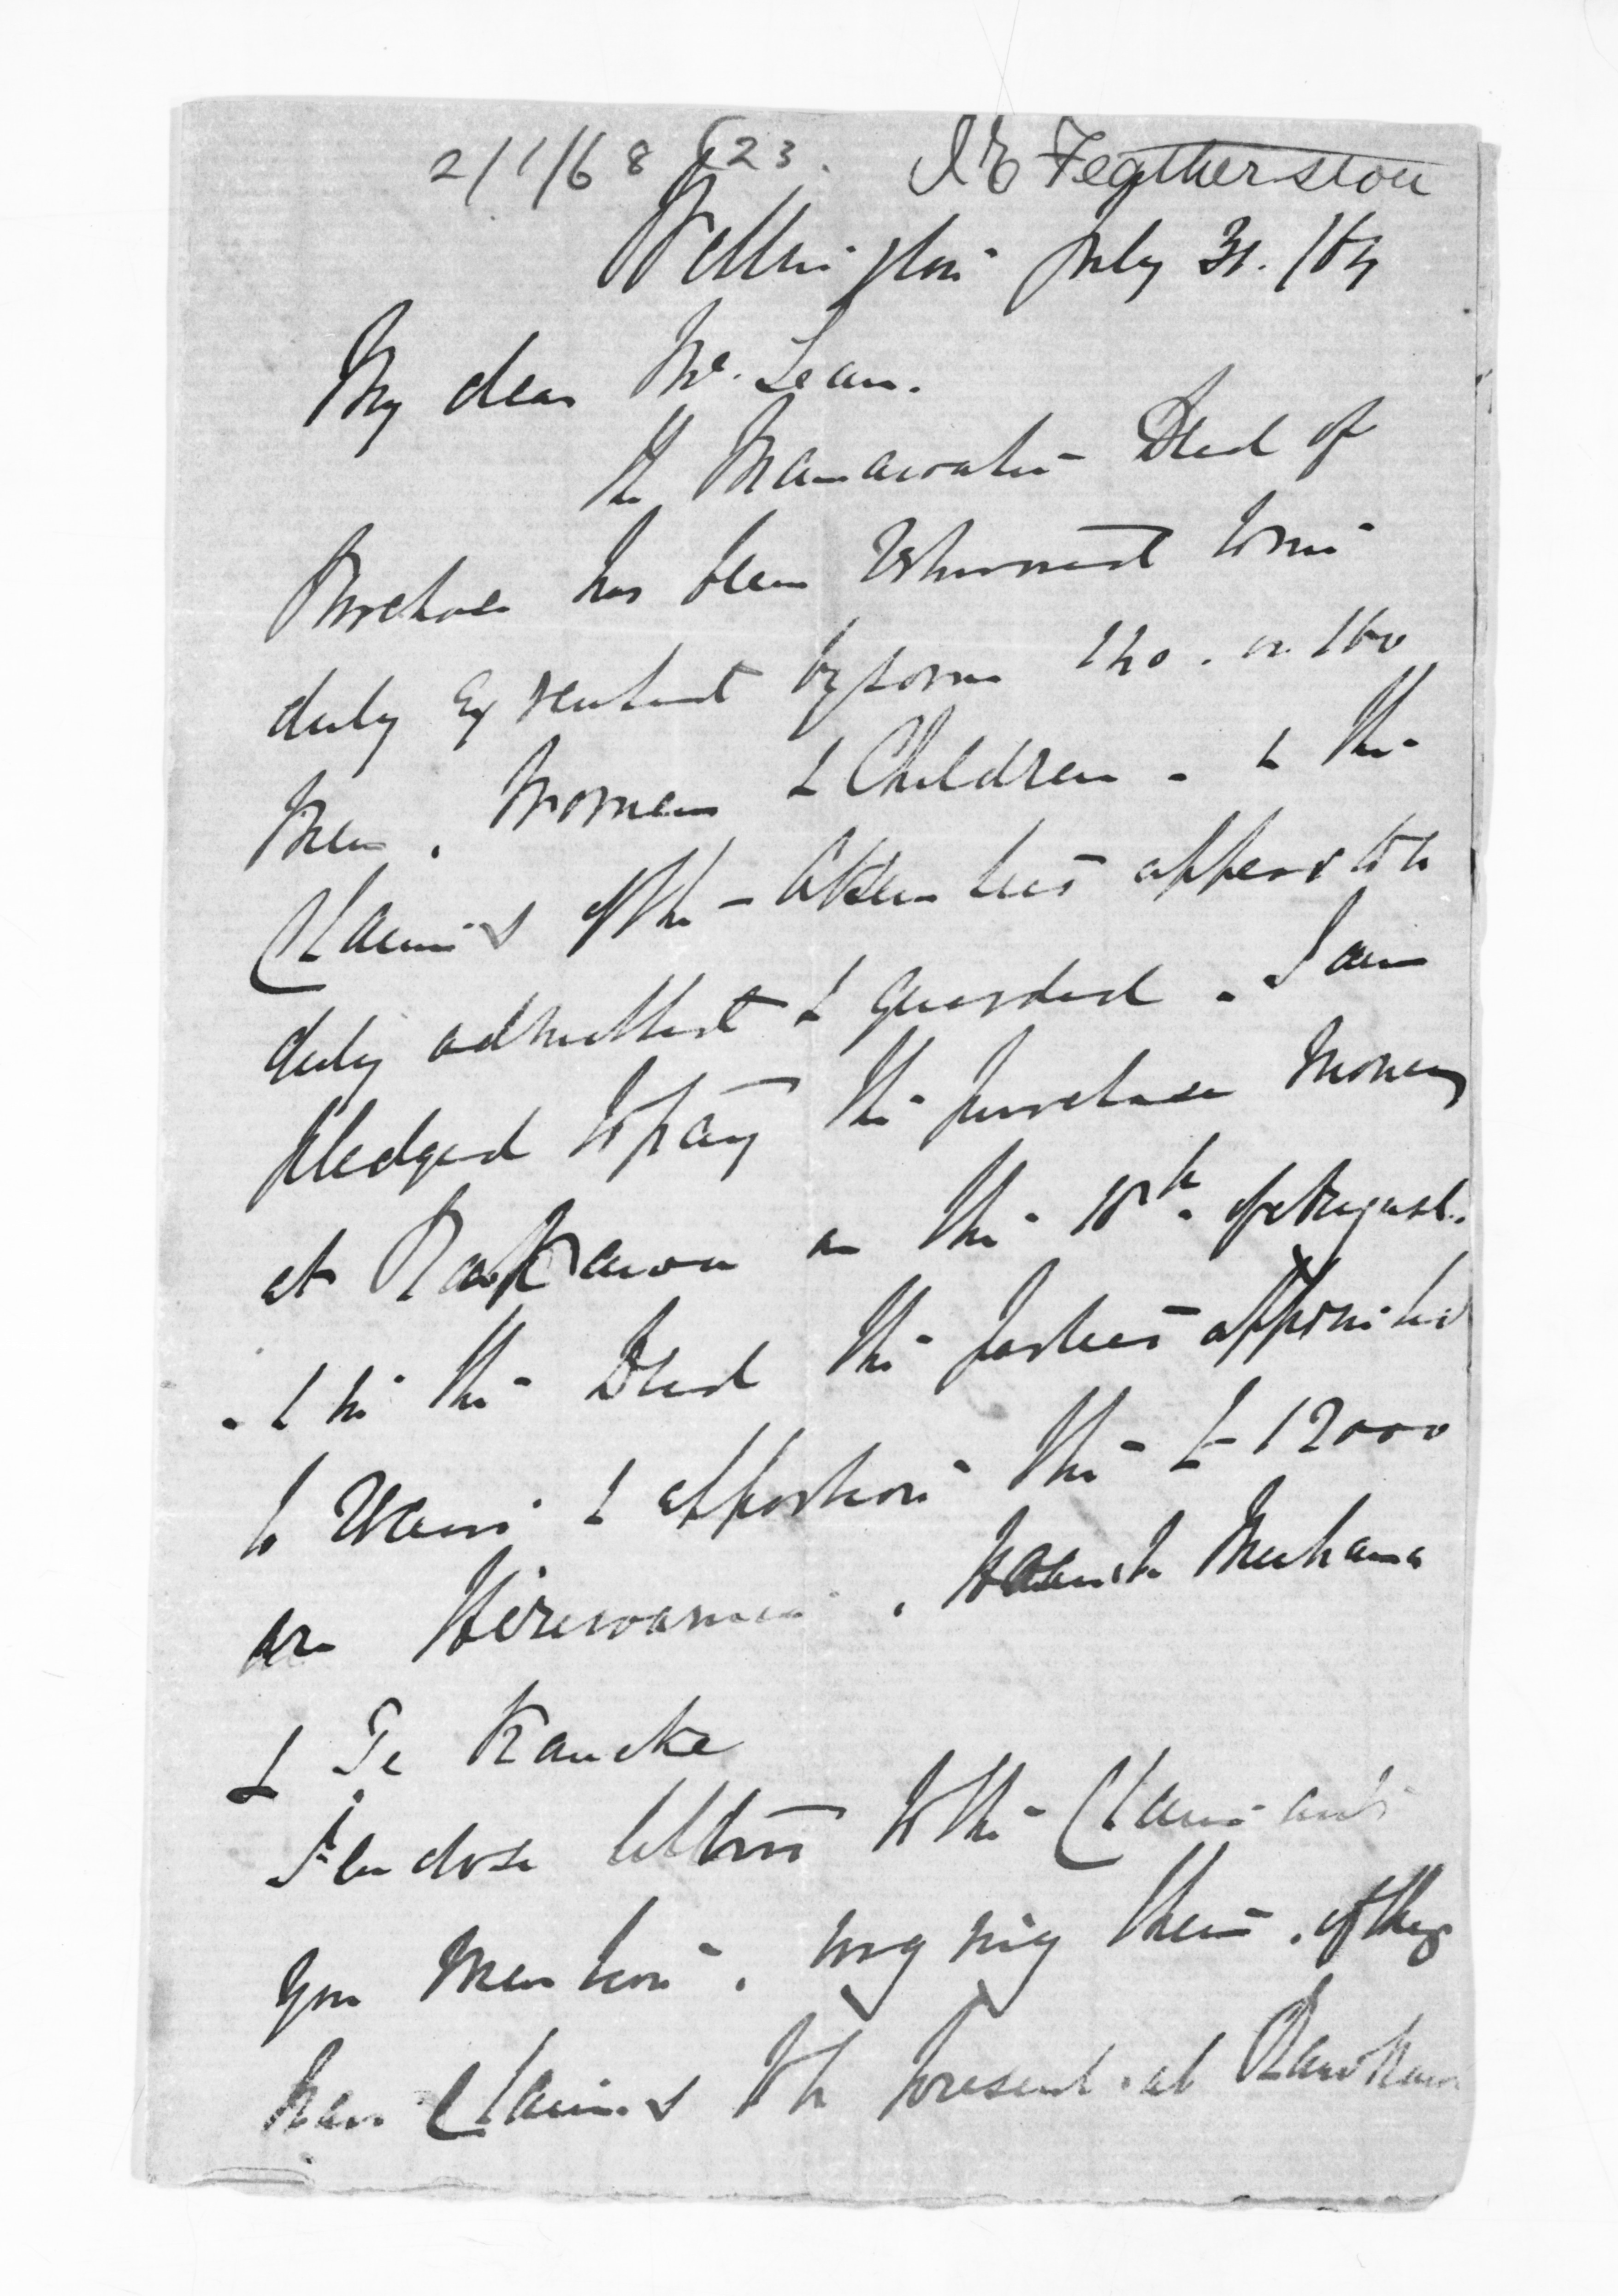 2/1/68 23. I E Featherston
Wellington July 31. 
My dear McLean.
The Manawatu Deed of
Purchase has been returned to me
duly executed by some or 
Men. Women & Children - & the
Claims of the absentees appear to be
duly admitted & guarded. I am
pledged to pay the purchase money
at Rangitikei on the of August.
& in the Deed the parties appointed
to receive & apportion the £12000
are . Te Muhama
& Te Rauhe
I enclose letters to the Claimants
you mention. urging them. if they
have Claims to be present at